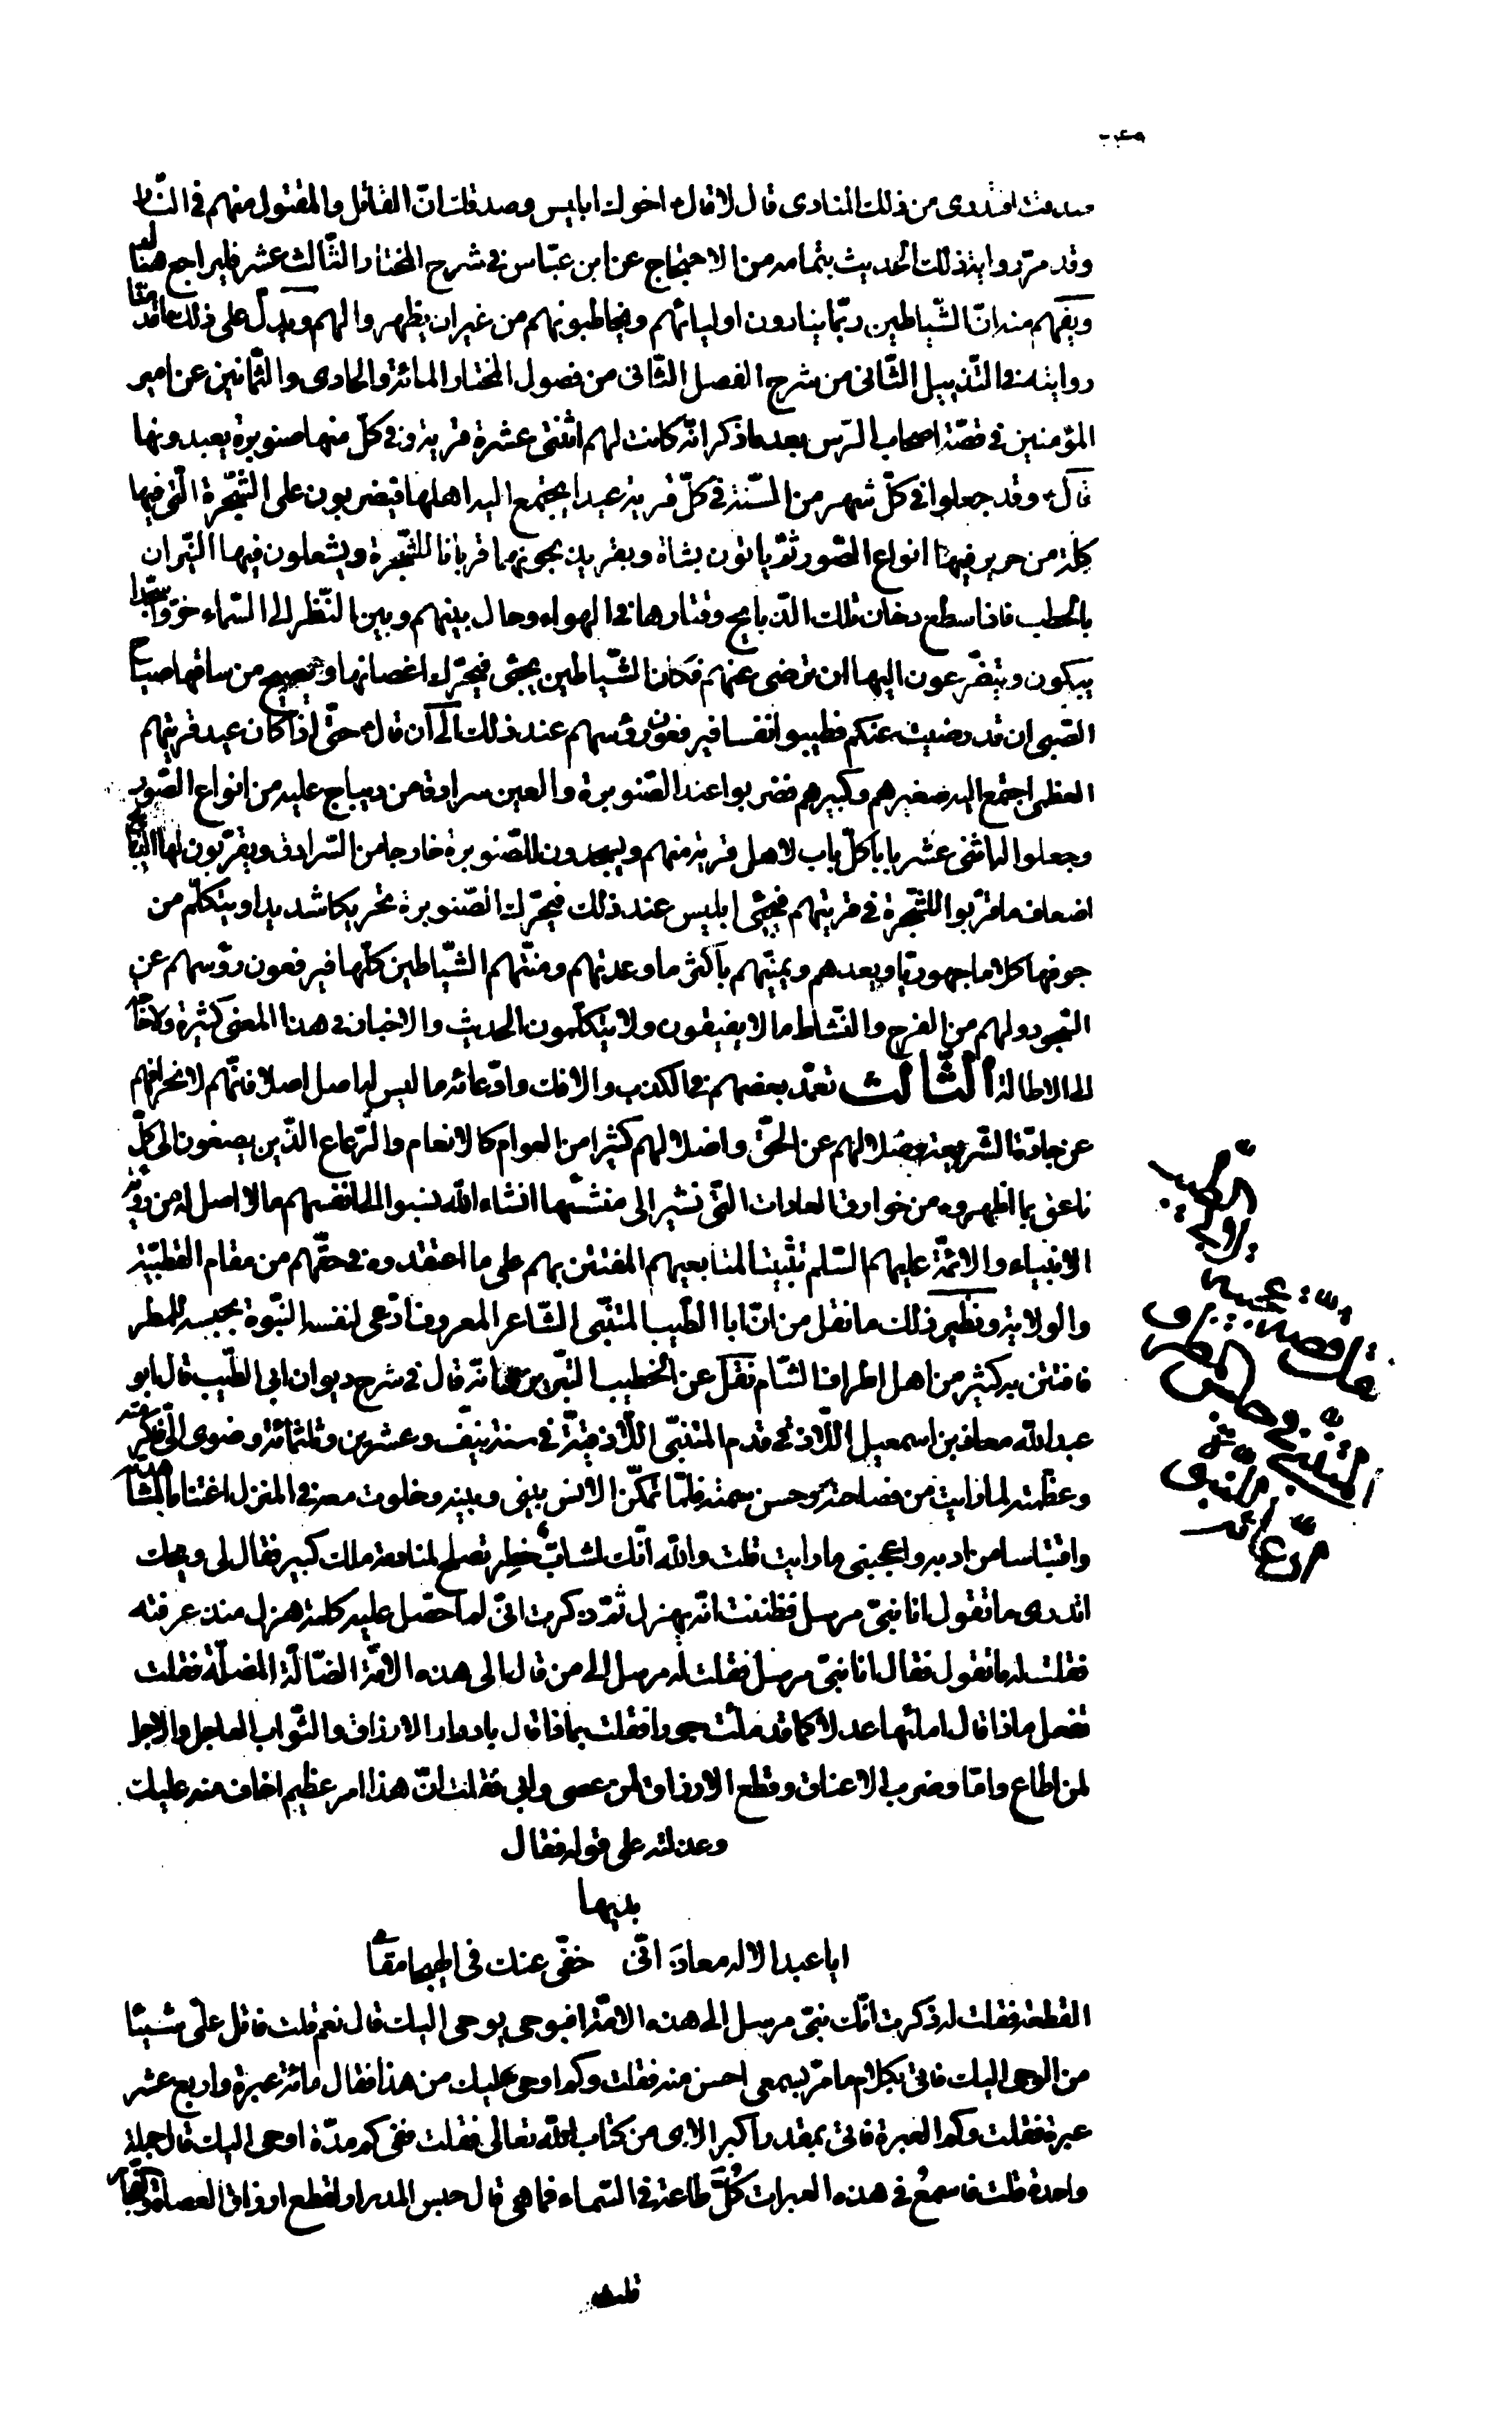 صدقت افتدرى من ذلك المنادى قال لا قال ع اخوك ابليس وصدقك انّ القاتل والمقتول منهم فى النّار
وقد مرّ رواية ذلك الحديث بتمامه من الاحتجاج عن ابن عبّاس فى شرح المختار الثّالث عشر فليراجع هناك
ويفهم منه انّ الشّياطين ربّما ينادون اوليائهم ويخاطبونهم من غير ان يظهروا لهم ويدلّ على ذلك ما قدّمنا
روايته فى التّذييل الثّانى من شرح الفصل الثّانى من فصول المختار المائة والحادى والثّمانين عن امير
المؤمنين فى قصّة اصحاب الرّس بعد ما ذكر انّه كانت لهم اثنتى عشرة قرية و فى كلّ منها صنوبرة يعبدونها
قال ع وقد جعلوا فى كلّ شهر من السّنة فى كلّ قرية عيدا يجتمع اليه اهلها فيضربون على الشّجرة الّتى فيها
كلّة من حرير فيها انواع الصّور ثمّ ياتون بشاة وبقر يذبحونهما قربانا للشّجرة ويشعلون فيها النّيران
بالحطب فاذا سطع دخان تلك الذّبايح وقتارها فى الهواء وحال بينهم وبين النّظر الى السّماء خرّوا سجّدا
يبكون ويتضّرعون اليها ان ترضى عنهم فكان الشّياطين يجئ فيحرّك اغصانها ويصيح من ساقها صياح
الصّبى ان قد رضيت عنكم فطيبوا نفسا فيرفعون رؤسهم عند ذلك الى ان قال ع حتّى اذا كان عيد قريتهم
العظمى اجتمع اليه صغيرهم وكبيرهم فضربوا عند الصّنوبرة والعين سرادقا من ديباج عليه من انواع الصّور
وجعلوا له اثنى عشر بابا كلّ باب لاهل قرية منهم ويسجدون للصّنوبرة خارجا من السّرادق ويقرّبون لها الذّبايح
اضعاف ما قرّبوا للشّجرة فى قريتهم فيجئ ابليس عند ذلك فيحرّك الصّنوبرة تحريكا شديدا ويتكلّم من
جوفها كلاما جهوريّا ويعدهم ويمنّيهم باكثر ما وعدتهم ومنّتهم الشّياطين كلّها فيرفعون رؤسهم عن
السّجود ولهم من الفرح والنّشاط ما لا يفيقون ولا يتكلّمون الحديث والاخبار فى هذا المعنى كثيرة ولا حاجة
الى الاطالة الثّالث تعمّد بعضهم فى الكذب والافك وادّعائه ما ليس له اصل اصلا فانّهم لانحرافهم
عن جادّة الشّريعة وضلالهم عن الحقّ واضلالهم كثيرا من العوام كالانعام والرّعاع الّذين يصغون الى كلّ
ناعق بما اظهروه من خوارق العادات الّتى نشير الى منشئها انشاء الله نسبوا الى انفسهم ما لا اصل له من رؤية
الانبياء والائمّة عليهم السّلم تثبيتا لمتابعيهم المفتتن بهم على ما اعتقدوه فى حقّهم من مقام القطبيّة
والولاية ونظير ذلك ما نقل من انّ ابا الطّيب المتنبّى الشّاعر المعروف ادّعى لنفسه النّبوة بحبسه للمطر
فافتتن به كثير من اهل اطراف الشّام نقل عن الخطيب التّبريزى انّه قال فى شرح ديوان ابى الطّيب قال ابو
عبدالله معاذ بن اسمعيل اللّاذقى قدم المتنبّى اللّاذقيّة فى سنة نيّف وعشرين وثلثمائة وضوى الىّ فاكرمته
وعظّمته لما رايت من فصاحته وحسن سمته فلمّا تمكّن الانس بينى وبينه وخلوت معه فى المنزل اغتناما لمشاهدته
واقتباسا من ادبه واعجبنى ما رايت قلت والله انّك لشابّ خطير تصلح لمنادمة ملك كبير فقال لى ويحك
اتدرى ما تقول انا نبىّ مرسل فظننت انّه يهزل ثمّ ذكرت انّى لم احصّل عليه كلمة هزل منذ عرفته
فقلت له ما تقول فقال انا نبىّ مرسل فقلت له مرسل الى من قال الى هذه الامّة الضّالّة المضلّة فقلت
تفعل ماذا قال املئها عدلا كما قد ملئت جورا فقلت بماذا قال بادرار الارزاق والثّواب العاجل والاجل
لمن اطاع واتا وضرب الاعناق وقطع الارزاق لمن عصى وابى فقلت انّ هذا امر عظيم اخاف منه عليك
وعذلته على قوله فقال
بديها
ايا عبد الاله معاذ انّى خفّى عنك فى الهيجا مقامى
القطعة فقلت له ذكرت انّك نبىّ مرسل الى هذه الامّة افيوحى يوحى اليك قال نعم قلت فاتل علىّ شيئا
من الوحى اليك فاتى بكلام ما مرّ بسمعى احسن منه فقلت وكم اوحى عليك من هذا فقال مائة عبرة واربع عشر
عبرة فقلت وكم العبرة فاتى بمقدار اكبر الاى من كتاب الله تعالى فقلت ففى كم مدّة اوحى اليك قال جملة
واحدة قلت فاسمع فى هذه العبرات انّ لك طاعة فى السّماء فما هى قال حبس المدرار لقطع ارزاق العصاة والفجّار
قلت